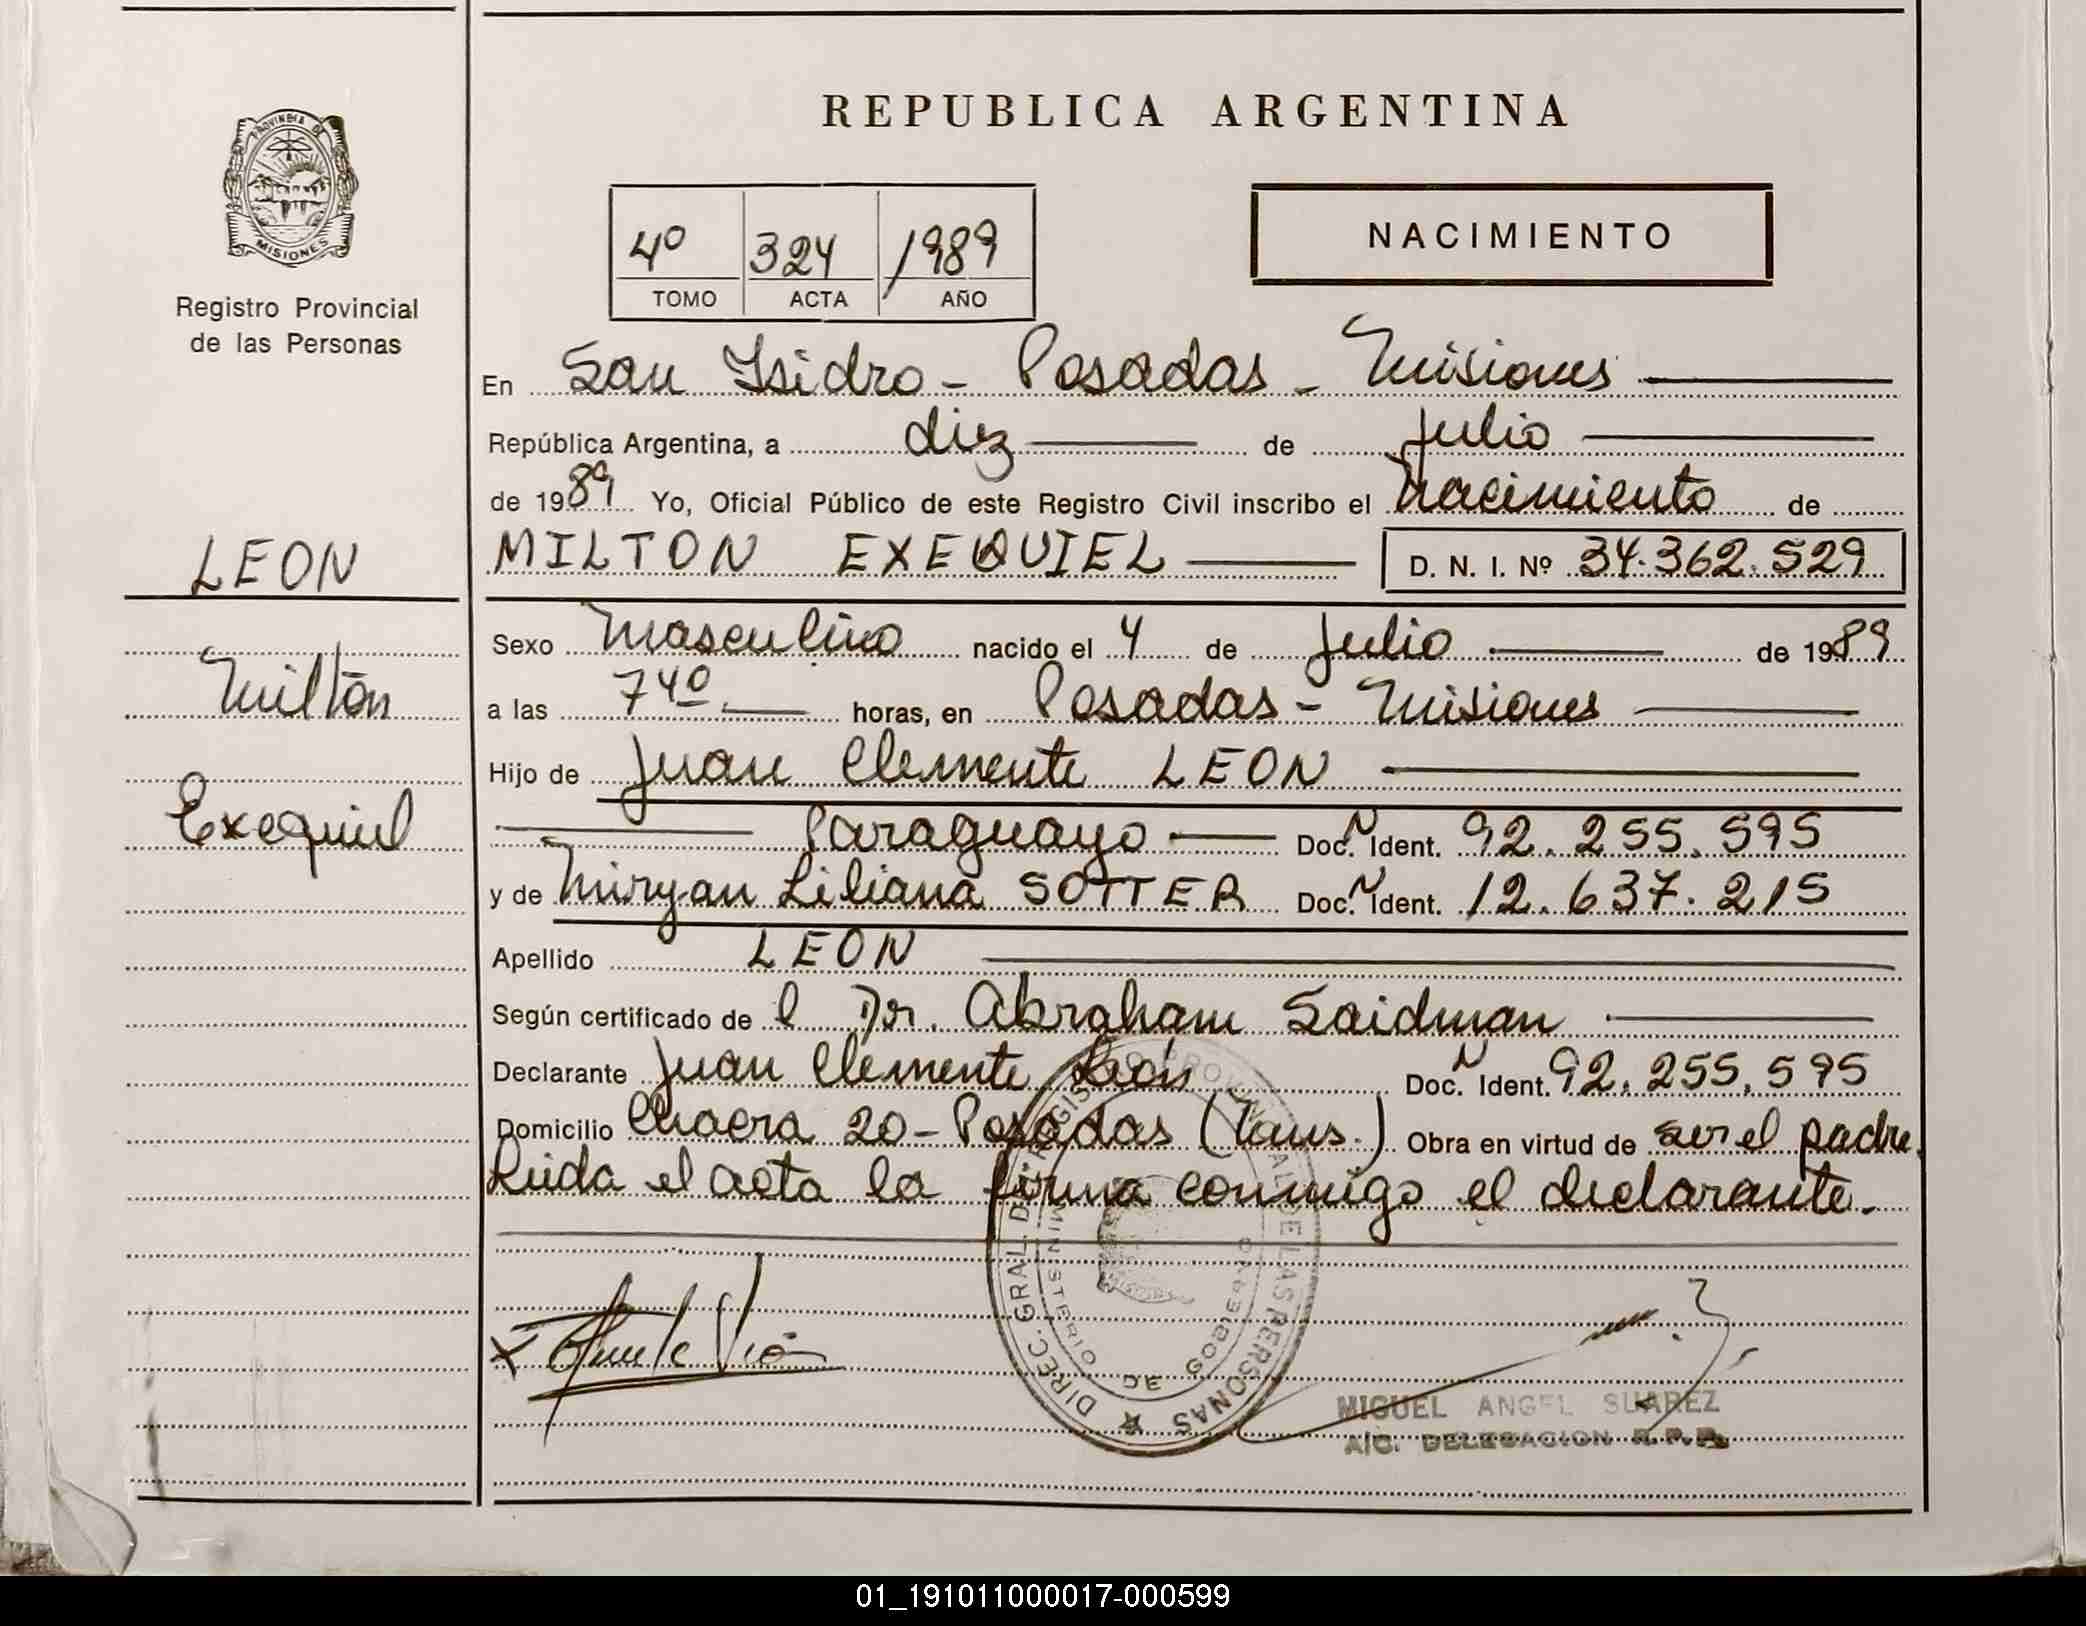 REPUBLICA ARGENTINA
PROVINCIA DE
MISIONES
Registro Provincial
de las Personas
4º 324 1989
TOMO ACTA AÑO
NACIMIENTO
En San Isidro - Posadas - Misiones
República Argentina, a diez de Julio
de 1989 Yo, Oficial Público de este Registro Civil inscribo el Nacimiento de
LEON
MILTON EXEQUIEL D. N. I. Nº 34.362.529
Sexo Masculino nacido el 4 de Julio de 1989
Milton
a las 7 40 horas, en Posadas - Misiones
Hijo de Juan Clemente LEON
Exequiel
Paraguayo Doc. N Ident. 92.255.595
y de Miryan Liliana SOTTER Doc. N Ident. 12.637.215
Apellido LEON
Según certificado de l Dr. Abraham Saidman
Declarante Juan Clemente León Doc. N Ident. 92.255.595
Domicilio Chacra 20 - Posadas (Mns.) Obra en virtud de ser el padre.
Leída el acta la firma conmigo el declarante.
DIREC. GRAL. DEL REGISTRO PROVINCIAL DE LAS PERSONAS
MINISTERIO DE GOBIERNO
MIGUEL ANGEL SUAREZ
A/C. DELEGACION R.P.P.
01_191011000017-000599